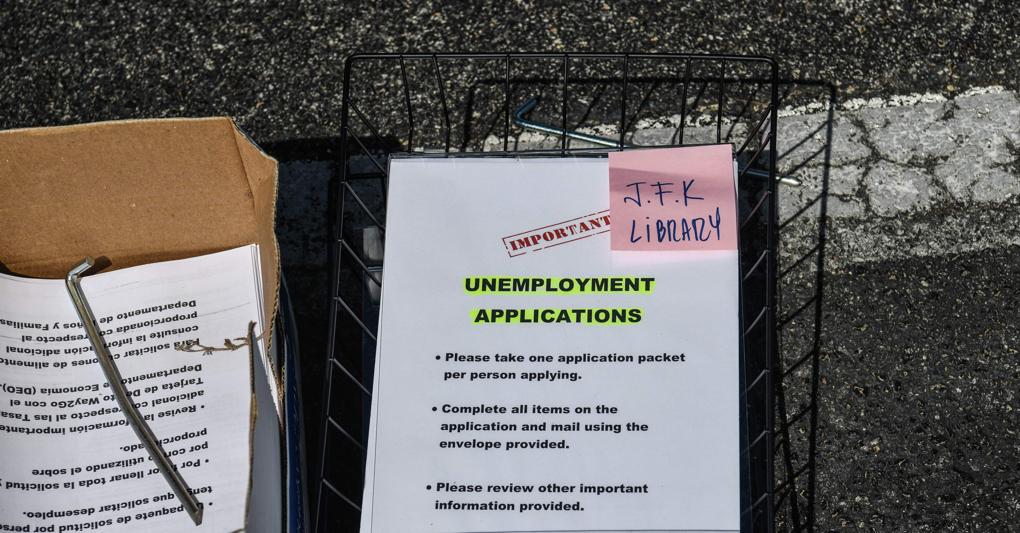 J.F.K
LiBRARY
IMPORTANT
UNEMPLOYMENT
APPLICATIONS
• Please take one application packet
per person applying.
• Complete all items on the
application and mail using the
envelope provided.
• Please review other important
information provided.
paquete de solicitud por
que solicitar desempleo.
• Por llenar toda la solicitud
por utilizando el sobre
• Revise la información importante
adicional respecto al las
Tarjeta de Way2Go con el
Departamento de Economía (DEO).
solicitar de
consulte adicional
proporcionada con respecto al
Departamento de y Familias